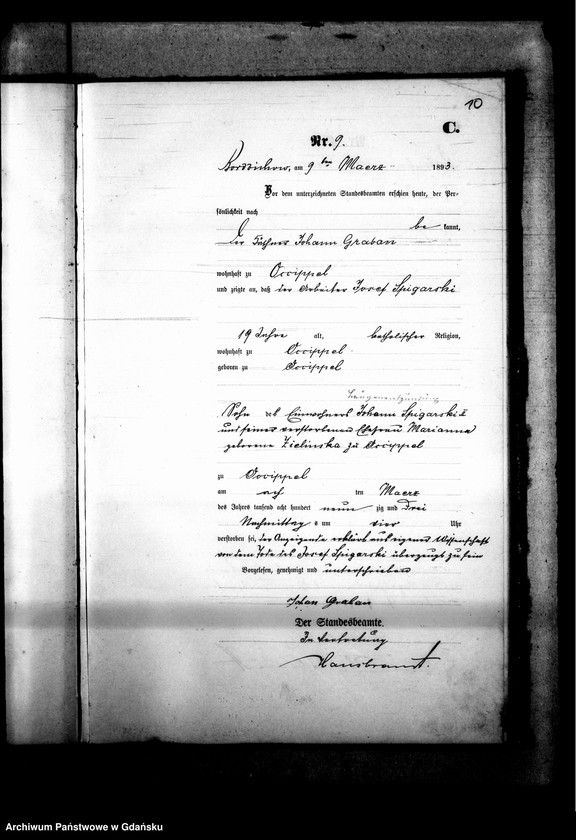 10
C.
Nr. 9.
Bordzichow, am 9 ten Maerz 1893.
Vor dem unterzeichneten Standesbeamten erschien heute, der Per-
sönlichkeit nach
be kannt,
der Käthner Johann Graban
wohnhaft zu Occippel
und zeigte an, daß der Arbeiter Josef Spigarski
19 Jahre alt, katholischer Religion,
wohnhaft zu Occippel
geboren zu Occippel
Lungenentzündung
Sohn des Einwohners Johann Spigarski
und seiner verstorbenen Ehefrau Marianna
geborene Zielinska zu Occippel
zu Occippel
am ten Maerz
des Jahres tausend acht hundert neun zig und Drei
Nachmittag s um vier Uhr
verstorben sei, der Anzeigende erklärt aus eigener Wissenschaft
von dem Tode des Josef Spigarski überzeugt zu sein
Vorgelesen, genehmigt und unterschrieben
Johan Graban
Der Standesbeamte.
In Vertretung
Archiwum Państwowe w Gdańsku